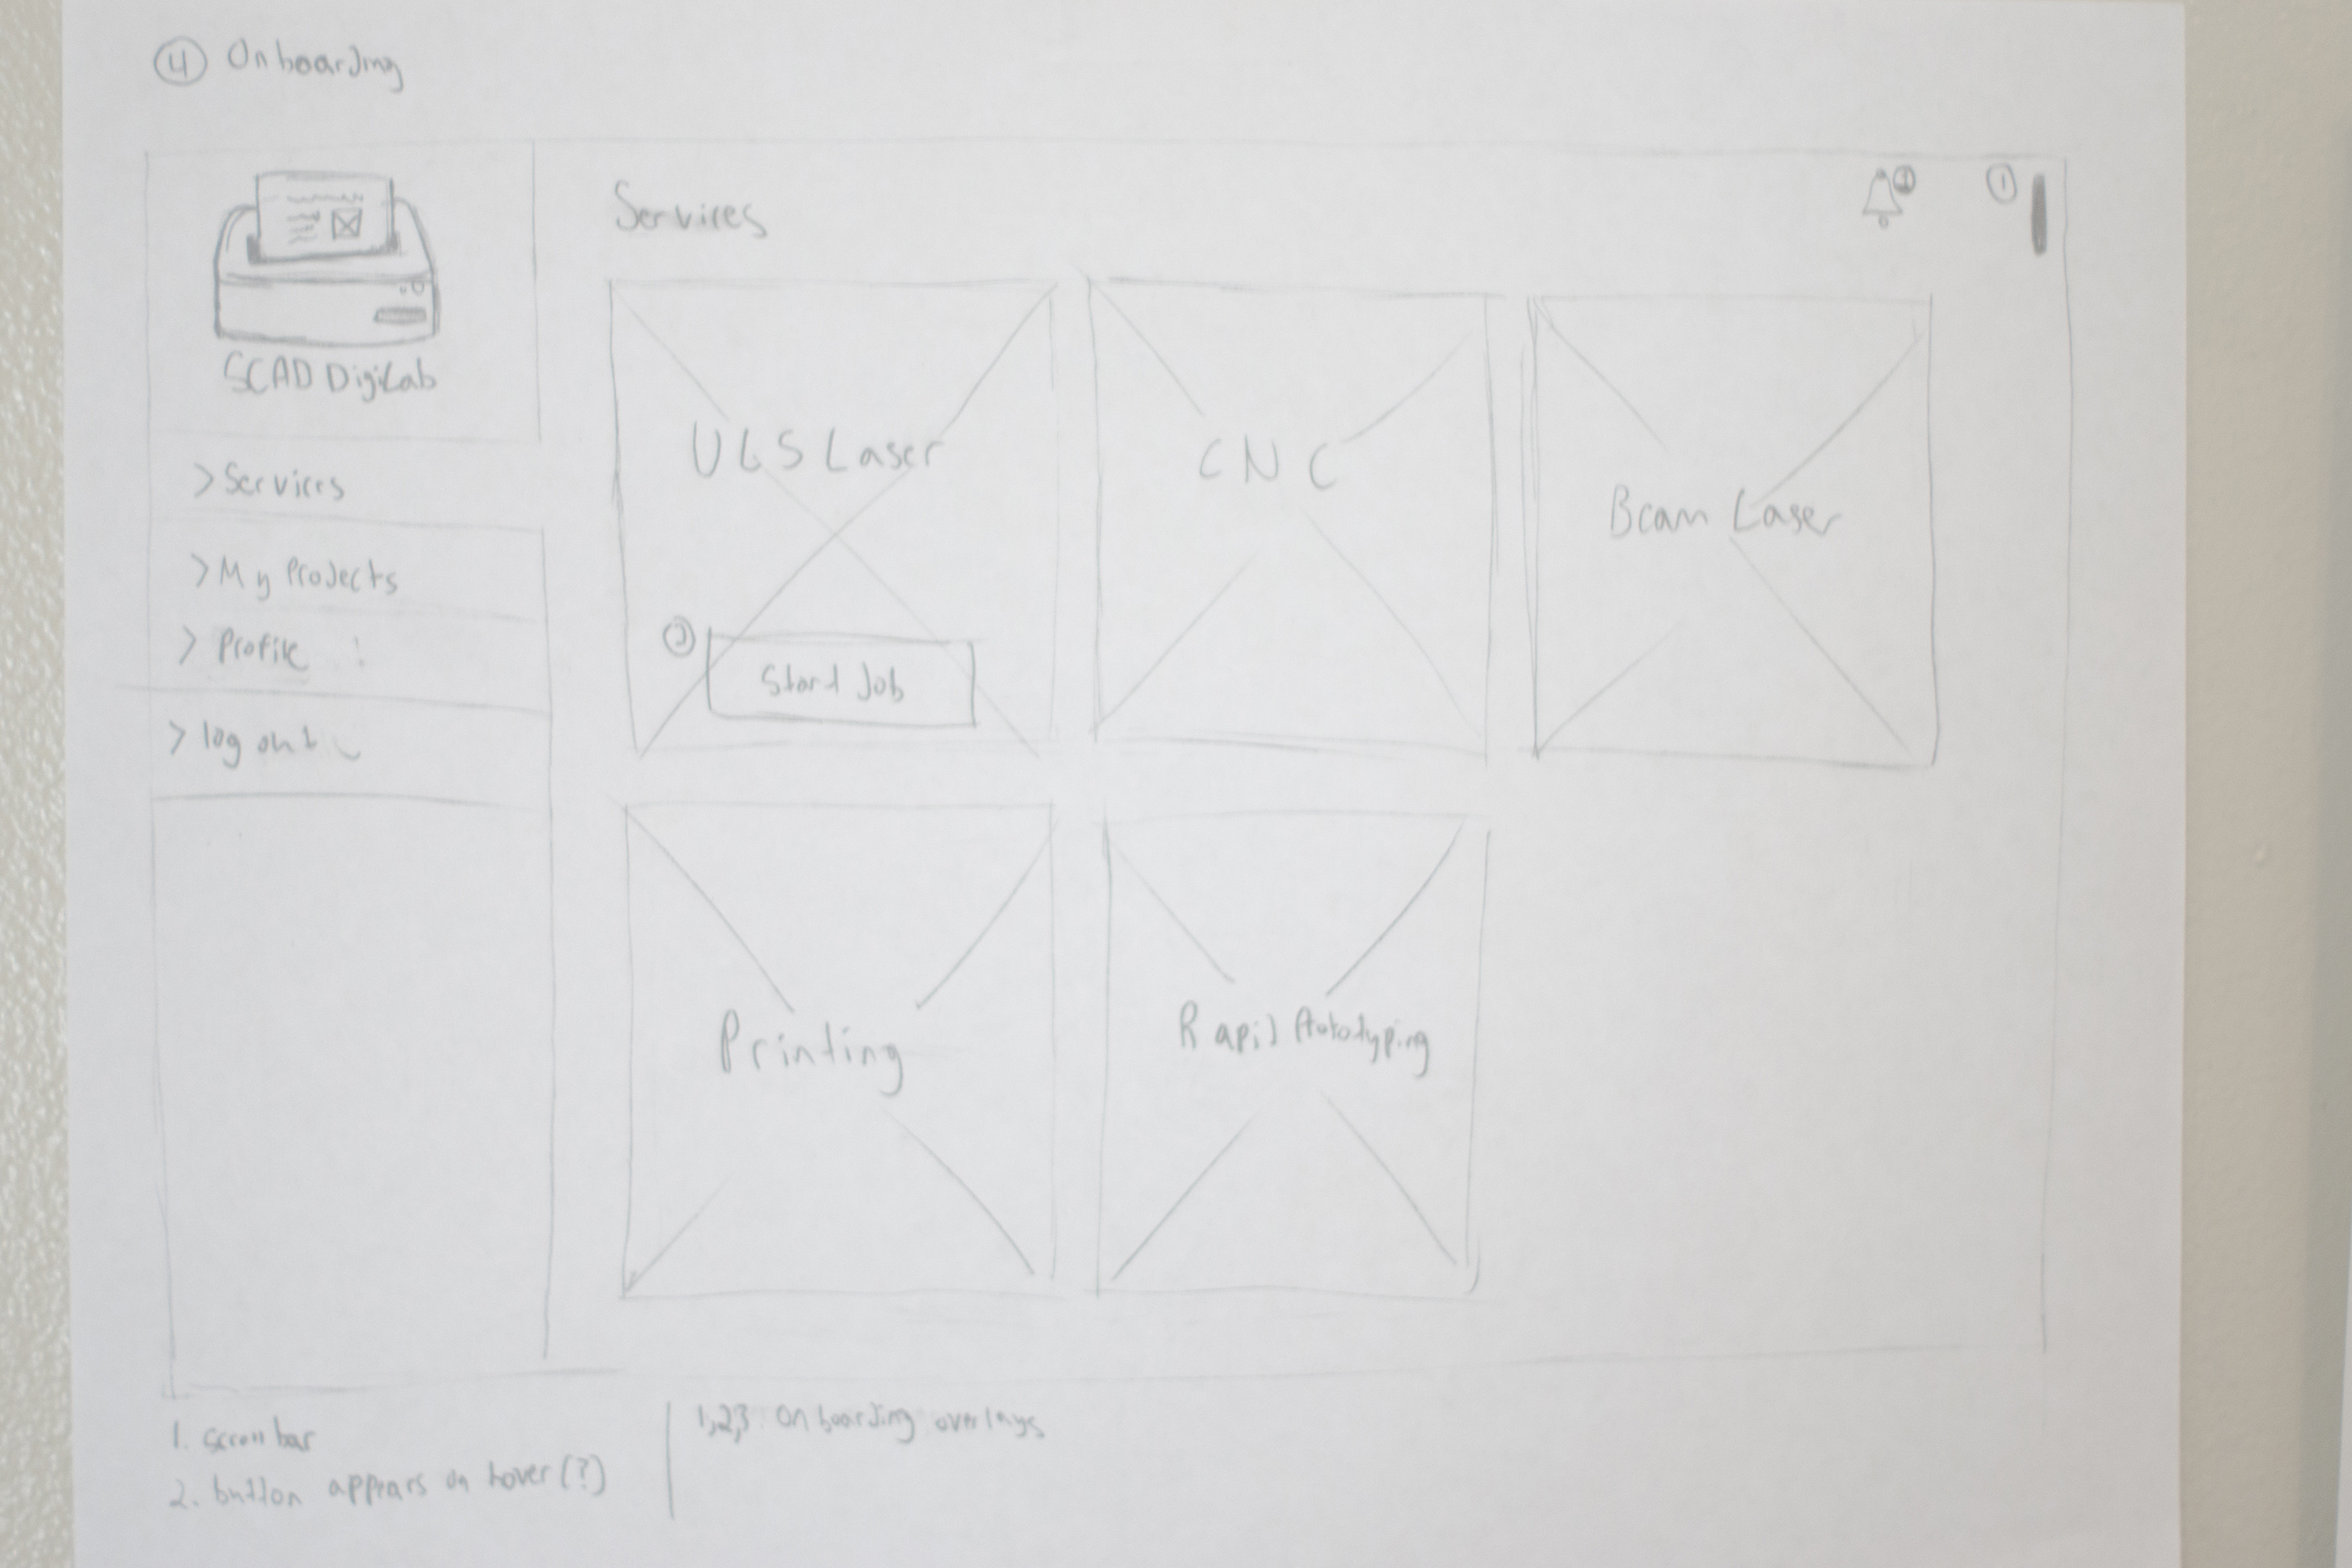 4 Onboarding
SCAD DigiLab
> Services
> My Projects
> Profile
> log out
Services
1
ULS Laser
CNC
Beam Laser
Start Job
Printing
Rapid Prototyping
1. scroll bar
2. button appears on hover (?)
1,2,3 Onboarding overlays